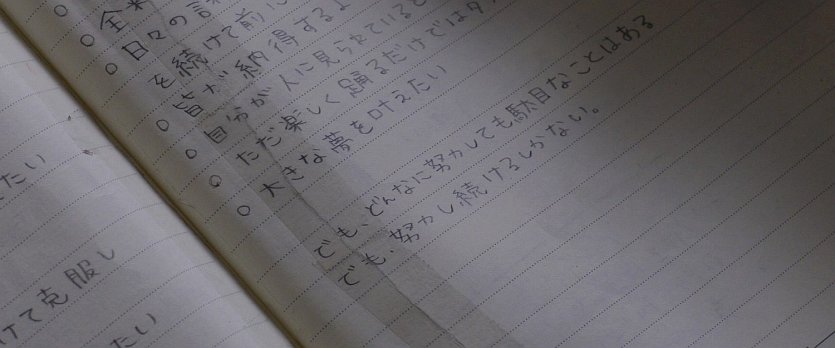 たい
けて克服し
たい
○ 全
○ 日々の
を続けて前に
○ 皆が納得するよ
○ 自分が人に見られていると
○ ただ楽しく踊るだけでは
○ 大きな夢を叶えたい
でも、どんなに努力しても駄目なことはある
でも、努力し続けるしかない。